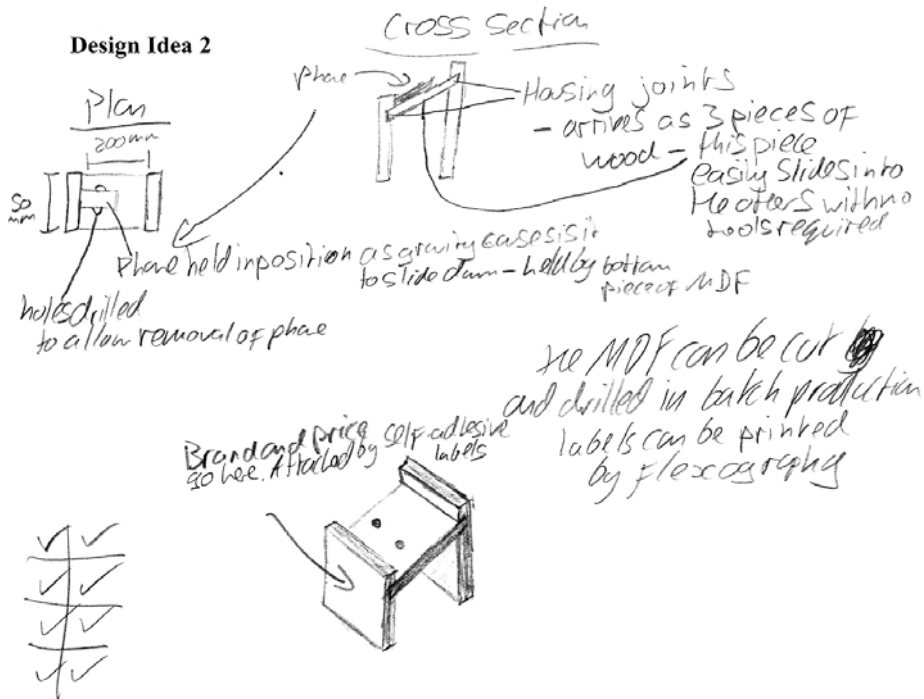 Design Idea 2
Cross Section
Plan
200mm
50
mm
phone
Housing joints
- arrives as 3 pieces of
wood - this piece
easily slides into
the others with no
tools required
Phone held in position as gravity causes it
to slide down - held by bottom
piece of MDF
holes drilled
to allow removal of phone
the MDF can be cut
and drilled in batch production
labels can be printed
by flexography
Brand and price
go here. Attached by self-adhesive
labels